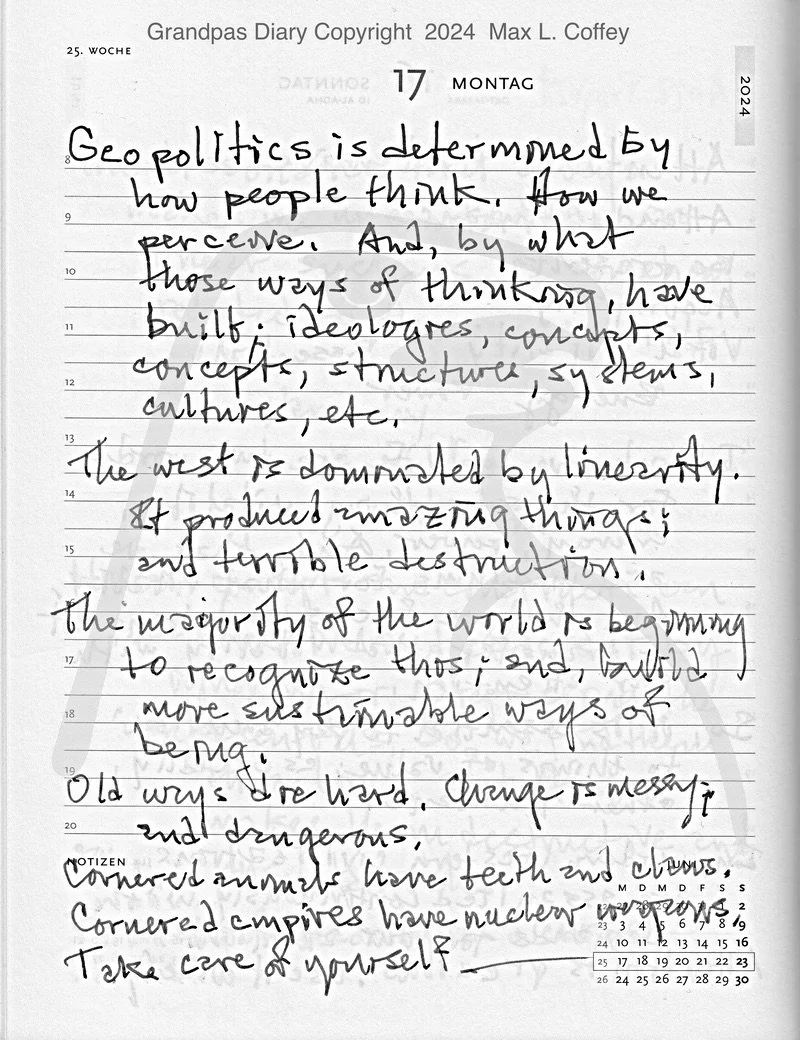 Grandpas Diary Copyright 2024 Max L. Coffey
25. WOCHE
17 MONTAG
2024
8 Geopolitics is determined by
how people think. How we
9
perceive. And, by what
10 those ways of thinking, have
11 built; ideologies, concepts,
concepts, structures, systems,
12
cultures, etc.
13
The west is dominated by linearity.
14
It produced amazing things;
15
and terrible destruction.
The majority of the world is beginning
17 to recognize this; and, build
18 more sustainable ways of
being.
19
Old ways die hard. Change is messy;
20 and dangerous.
NOTIZEN
JUNI
Cornered animals have teeth and claws.
M D M D F S S
2
Cornered empires have nuclear weapons.
23 3 4 5 6 7 8 9
24 10 11 12 13 14 15 16
Take care of yourself
25 17 18 19 20 21 22 23
26 24 25 26 27 28 29 30